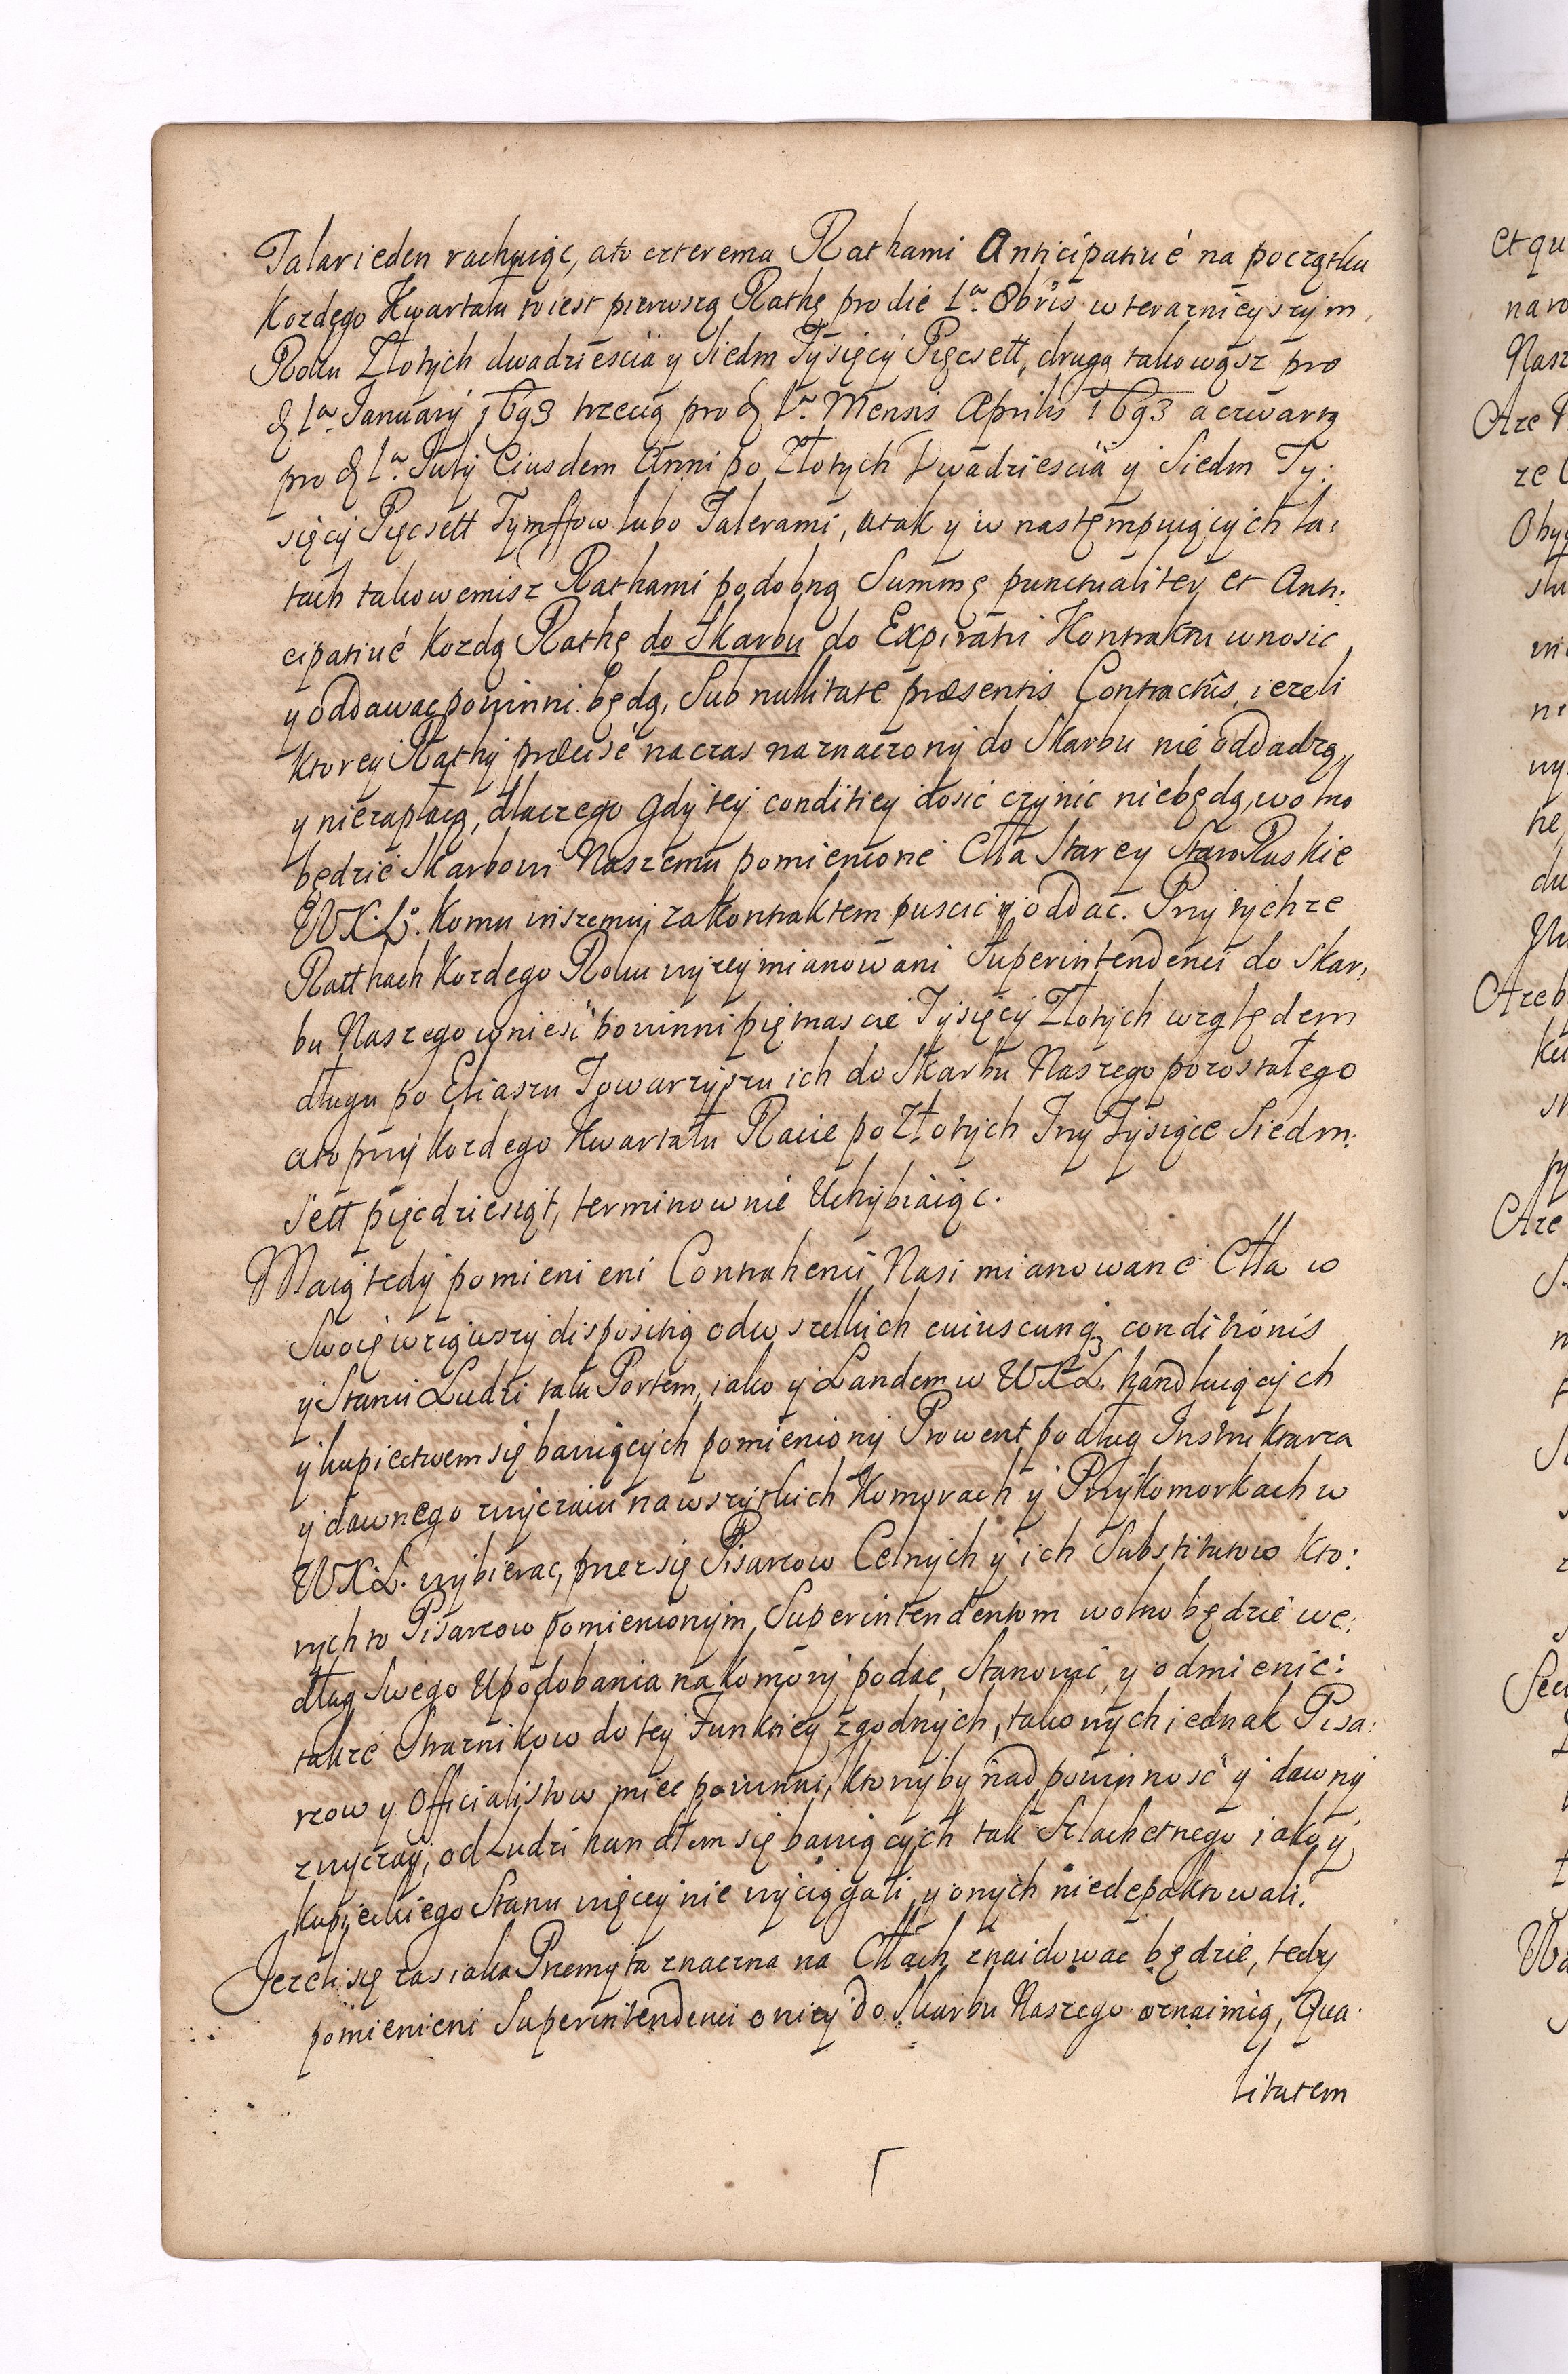 Talar ieden rachuiąc, ato czterema Rathami Anticipatiué na początku
Kozdego Kwartału to iest pierwszą Rathę pro die 1ª 8bris w teraznieyszym
Roku Złotych dwadziescia y Siedm Tysięcy Pięcsett, drugą takowąsz pro
d 1ª January 1693 trzecią pro d 1ª Mensis Aprilis 1693 aczwartą
pro d 1ª July Eiusdem Anni po Złotych Dwadziescia y Siedm Ty:
sięcy Pięcsett Tymffow lubo Talerami, atak y w nastęmpuiących la:
tach takowemisz Rathami podobną Summę punctualiter et Anti:
cipatiué Kozdą Rathę do Skarbu do Expiratii Kontraktu wnosic
y oddawac powinni będą, Sub nullitate præsentis Contractûs, iezeli
ktorey Rathy præcise naczas naznaczony do Skarbu nie oddadzą,
y niezapłacą, dlaczego gdy tey conditiey dosic czynic niebędą, wolno
będzie Skarbowi Naszemu pomienione Cła Starey StaroRuskie
WXL. Komu inszemu zakontraktem puscic y oddac. Przy tychze
Ratthach Kozdego Roku wyzey mianowani Superintendenci do Skar:
bu Naszego wniesć powinni piętnascie Tysięcy Złotych względem
długu po Eliaszu Towarzyszu ich do Skarbu Naszego pozostałego
ato przy kozdego Kwartału Racie po Złotych Trzy Tysiące Siedm:
sett pięcdziesiąt, terminow nie Uchybiaiąc.
Maią tedy pomienieni Contrahenci Nasi mianowane Cła w
Swoię wziąwszy dispositią odwszelkich cuiuscunq conditionis
y Stanu Ludzi tak Portem, iako y Landem w WXL. handluiących
y kupiectwem się bawiących pomieniony Prowent podług Instruktarza
y dawnego zwyczaiu nawszytkich Komorach y Przykomorkach w
WXL. wybierac, przez się Pisarzow Celnych y ich Substitutow kto:
rych to Pisarzow pomienionym Superintendentom wolno będzie we:
dług Swego Upodobania nakomory podac, Stanowic y odmienic:
takze Straznikow do tey Funkciey zgodnych, takowych iednak Pisa:
rzow y Officialistow miec powinni, ktorzyby nad powinnosć y dawny
zwyczay, od Ludzi handlem się bawiących tak Szlachetnego iako y
kupieckiego Stanu więcey nie wyciągali, y onych niedepaktowali.
Jezeli się zas iaka Przemyta znaczna na Cłach znaidowac będzie, tedy
pomienieni Superintendenci o niey do Skarbu Naszego oznaimią, Qua
litatem